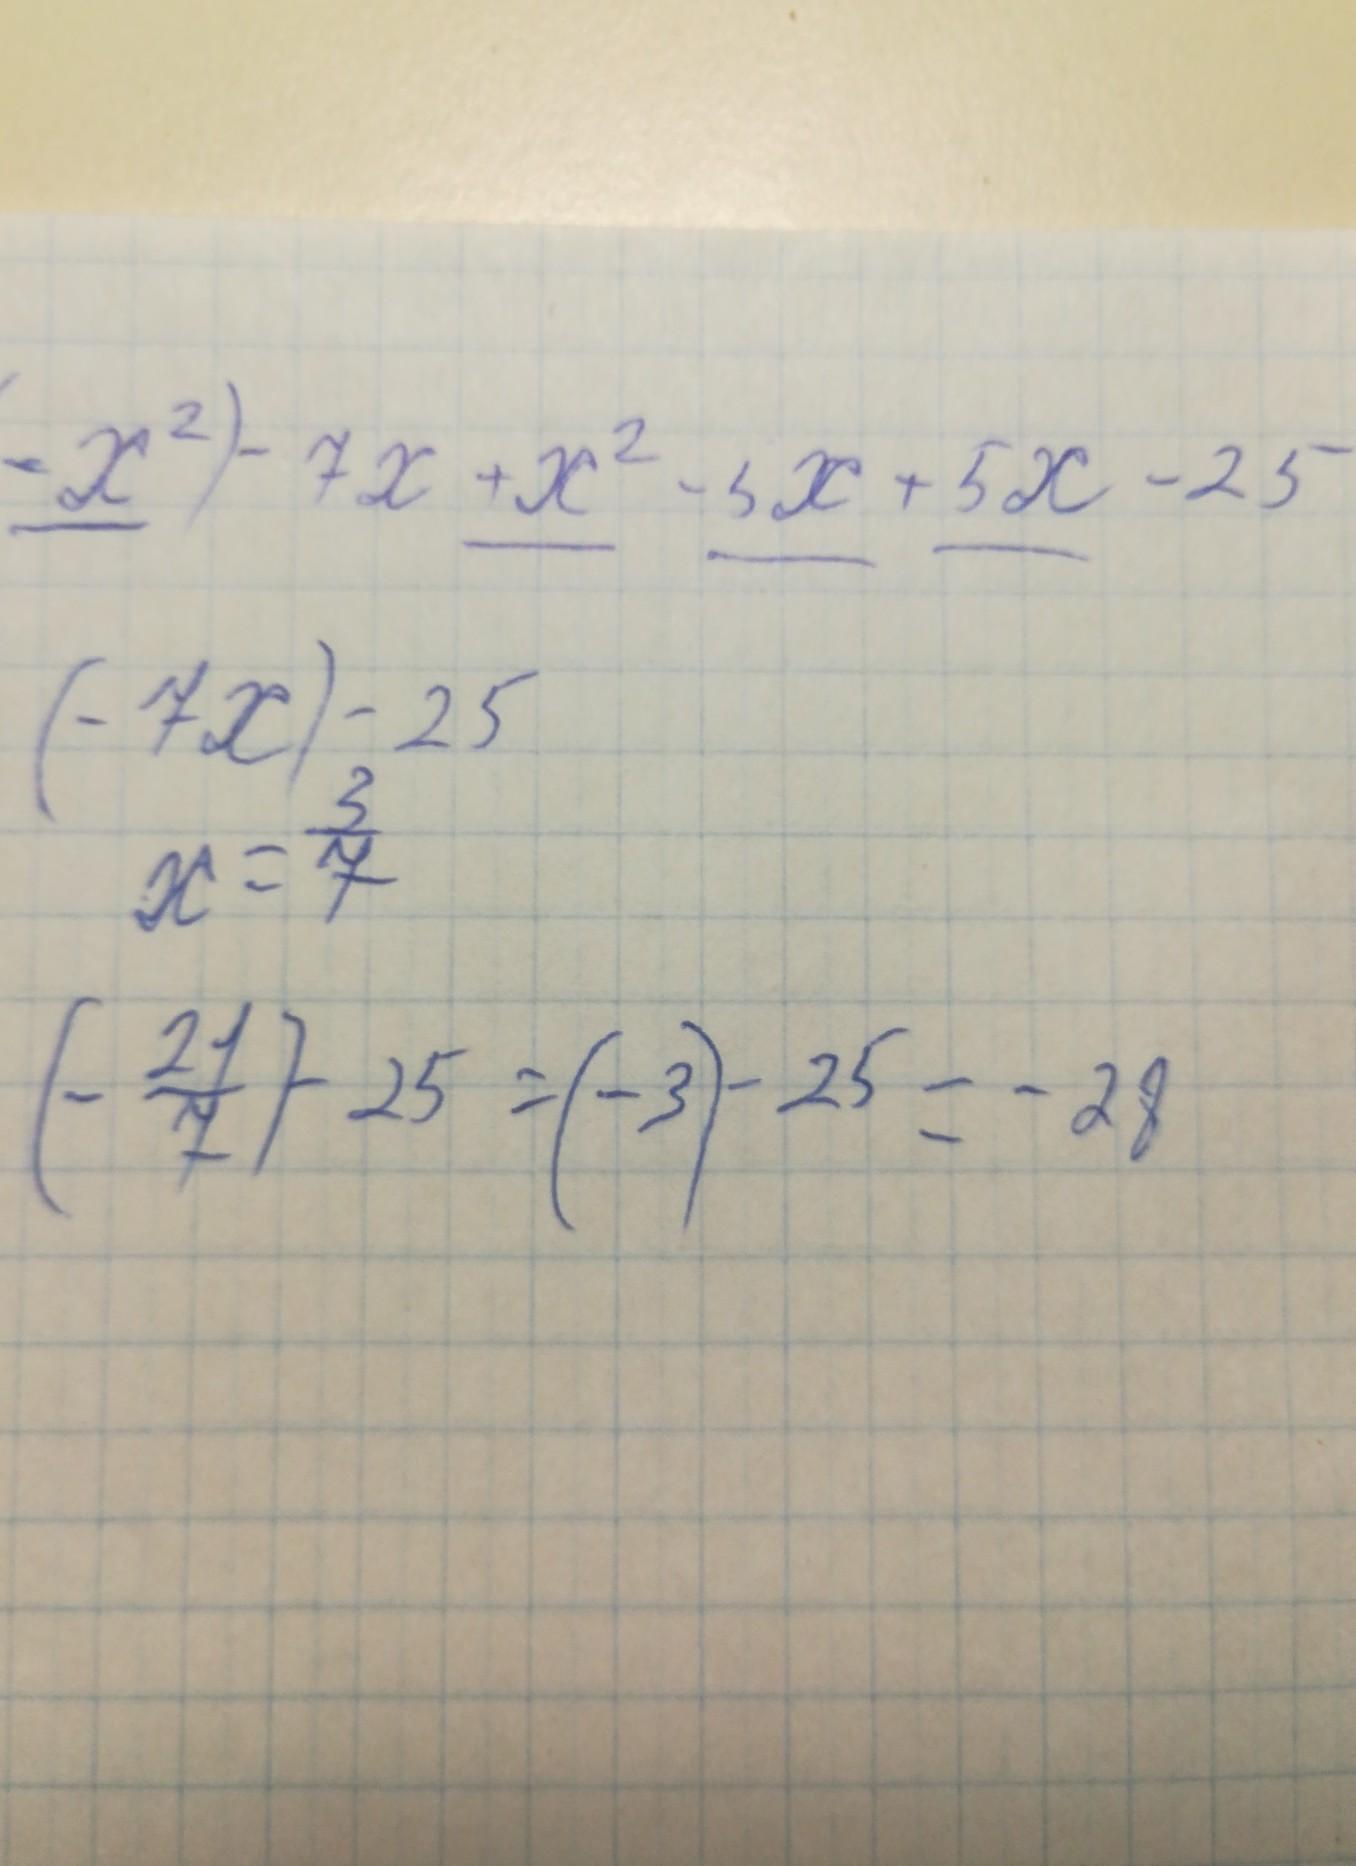 (-x²)-7x+x²-5x+5x-25
(-7x)-25
x=3/7
(-21/7)-25=(-3)-25=-28